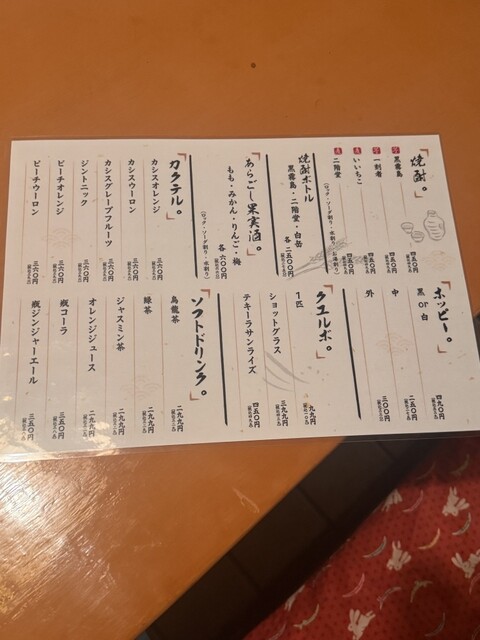 焼酎。
芋 黒霧島 四五〇円
芋 一刻者 四五〇円
麦 いいちこ 四五〇円
麦 二階堂 四五〇円
(ロック・ソーダ割り・水割り・お湯割り)
焼酎ボトル
黒霧島・二階堂・白岳
各 二五〇〇円
(ロック・ソーダ割り・水割り)
あらごし果実酒。
もも・みかん・りんご・梅
各 六〇〇円
カクテル。
カシスオレンジ 三六〇円
カシスウーロン 三六〇円
カシスグレープフルーツ 三六〇円
ジントニック 三六〇円
ピーチオレンジ 三六〇円
ピーチウーロン 三六〇円
ホッピー。
黒or白 四九〇円
中 二五〇円
外 三〇〇円
クエルボ。
1匹 九九円
ショットグラス 三九九円
テキーラサンライズ 四五〇円
ソフトドリンク。
烏龍茶 二九九円
緑茶 二九九円
ジャスミン茶 二九九円
オレンジジュース 二九九円
瓶コーラ 三五〇円
瓶ジンジャーエール 三五〇円